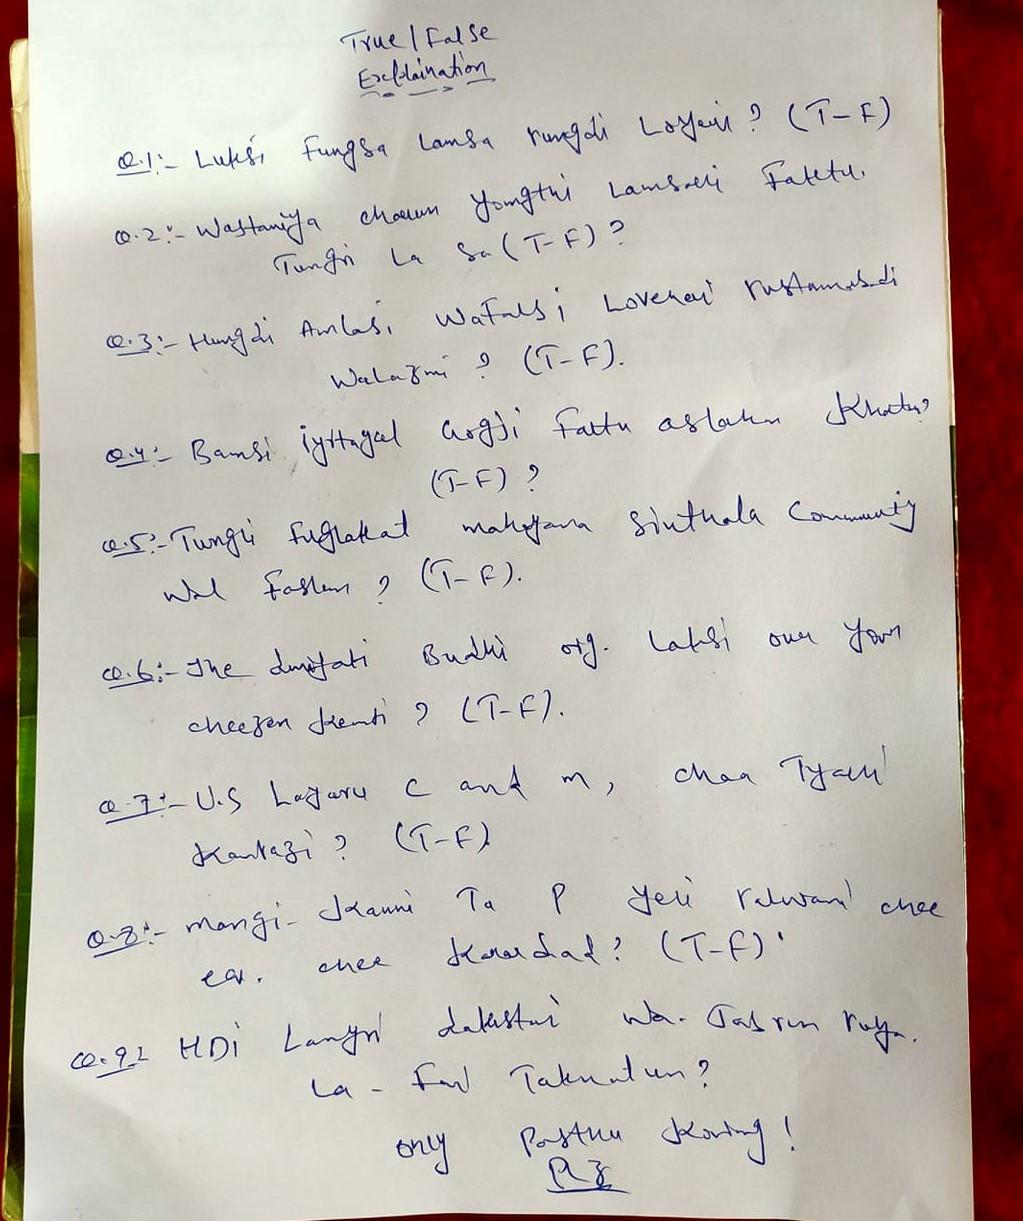 True / False
Explaination
Q.1:- Luksi Fungsa Lamsa rungdi Loyeui? (T-F)
Q.2:- Wastaniya chaeun Yomgthi Lamsaeli Faletu.
Tungri La Sa (T-F)?
Q.3:- Hungdi Amlasi, Wafalsi Loverai rustamabadi
Walazmi? (T-F).
Q.4:- Bamsi iyrtagal Gogji Fattu aslahu Khatu?
(T-F)?
Q.5:- Tungli Fuglakat mahayana Sinthala Community
Wal Faslun? (T-F).
Q.6:- The Budhi org. Laksi our your
cheezen Kemti? (T-F).
Q.7:- U.S Lagaru C and m, chaa Tyalli
Kantazi? (T-F)
Q.8:- mangi- Kauni Ta P Yeli ralwani chee
ea. chee (T-F)
Q.9:- HDI Langri dakstni wa. Tasrun ruya.
La - Takualun?
only Pasthu Koring!
Plz